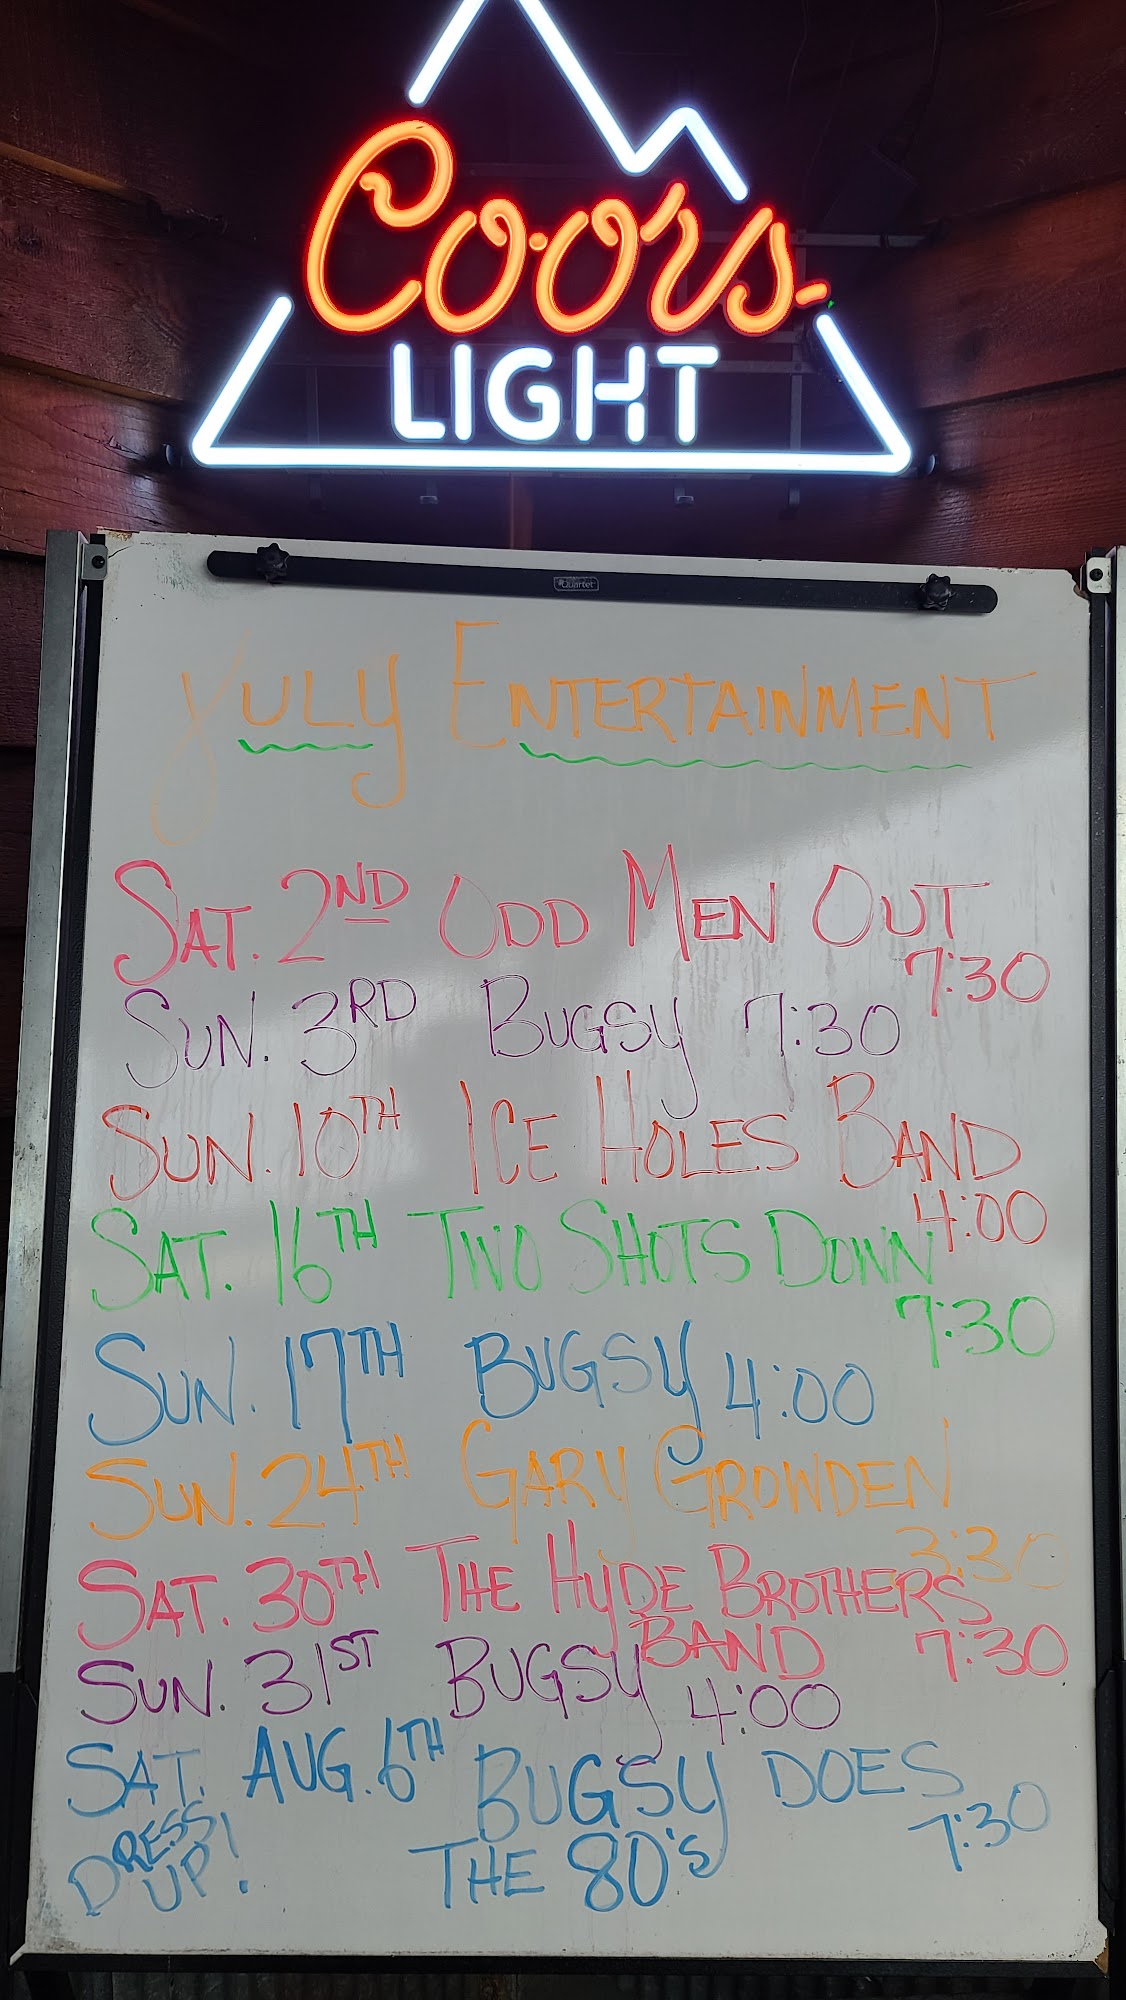 Coors
LIGHT
Quartet
JULY ENTERTAINMENT
SAT. 2ND ODD MEN OUT
7:30
SUN. 3RD BUGSY 7:30
SUN. 10TH ICE HOLES BAND
4:00
SAT. 16TH TWO SHOTS DOWN
7:30
SUN. 17TH BUGSY 4:00
SUN. 24TH GARY GROWDEN
3:30
SAT. 30TH THE HYDE BROTHERS
BAND 7:30
SUN. 31ST BUGSY 4:00
SAT. AUG. 6TH BUGSY DOES
THE 80's 7:30
DRESS
UP!